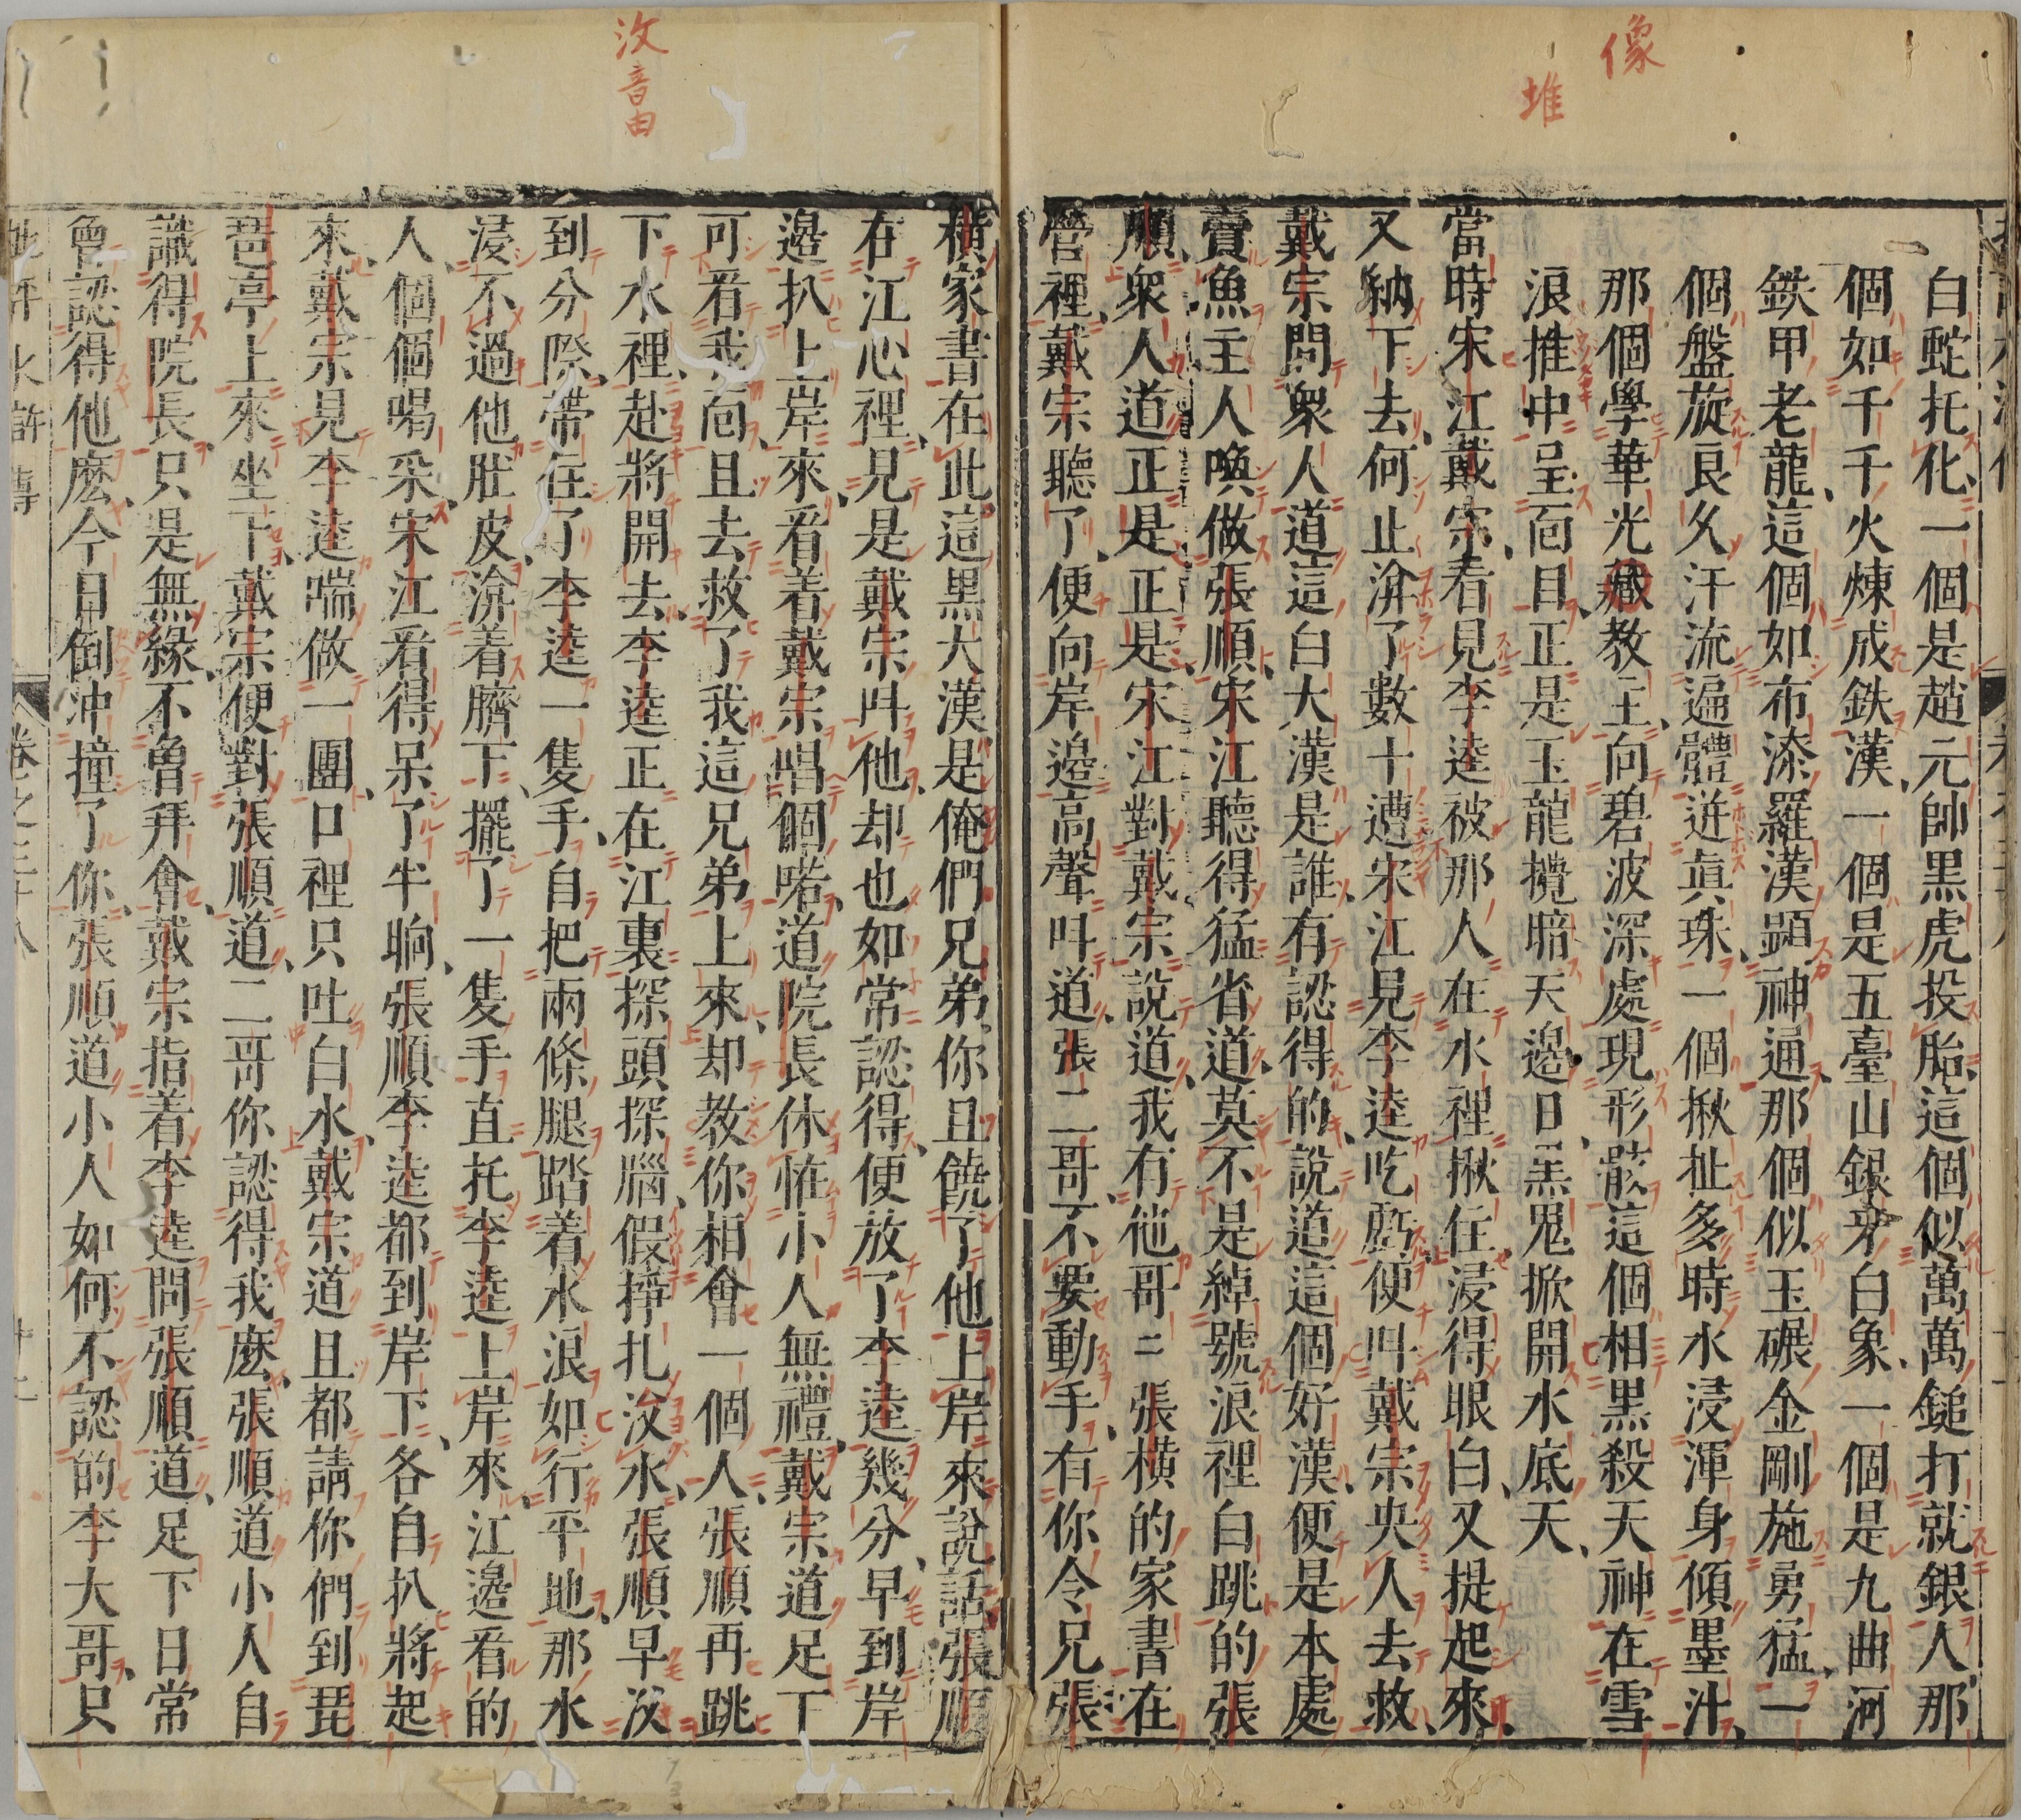 像
堆
白蛇托化、一個是趙元帥黒虎投胎、這個似萬萬鎚打就銀人、那
個如千千火煉成鉄漢、一個是五臺山銀牙白象、一個是九曲河
鉄甲老龍、這個如布漆羅漢顕神通、那個似玉碾金剛施勇猛、一
個盤旋良久汗流遍體迸真珠、一個揪扯多時水浸渾身傾墨汁、
那個學華光藏教主、向碧波深處現形骸、這個相黒殺天神在雪
浪推中呈面目、正是玉龍攪暗天邉日、黒鬼掀開水底天、
當時宋江戴宗、看見李逵被那人在水裡揪住浸得眼白、又提起來、
又納下去、何止渰了數十遭宋江見李逵吃虧、便叫戴宗央人去救、
戴宗問衆人道這白大漢是誰、有認得的、說道這個好漢、便是本處
賣魚主人喚做張順、宋江聽得猛省道、莫不是綽號浪裡白跳的張
順、衆人道正是正是、宋江對戴宗說道、我有他哥ニ張橫的家書在
營裡、戴宗聽了、便向岸邉高聲叫道、張二哥、不要動手、有你令兄張
橫家書在此這黒大漢是俺們兄弟你且饒了他上岸來說話張順
在江心裡、見是戴宗叫他、却也如常認得、便放了李逵幾分、早到岸
邉扒上岸來、看着戴宗唱個喏、道院長休恠小人無禮、戴宗道足下
可看我面、且去救了我這兄弟上來、却教你相會一個人、張順再跳
下水裡、赴將開去、李逵正在江裏探頭探腦、假掙扎汶水、張順早汶
到分際、帶住了李逵一隻手、自把兩條腿踏着水浪如行平地、那水
浸不過他肚皮、渰着臍下、擺了一隻手直托李逵上岸來、江邉看的
人、個個喝采、宋江看得呆了半晌、張順李逵都到岸下、各自扒將起
來、戴宗見李逵喘做一團、口裡只吐白水、戴宗道且都請你們到琵
琶亭上來坐下、戴宗便對張順道、二哥你認得我麽、張順道小人自
識得院長、只是無緣、不曾拜會、戴宗指着李逵問張順道、足下日常
曾認得他麽、今日倒沖撞了你、張順道小人如何不認的李大哥、只
汶音由